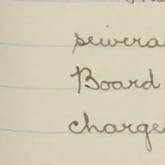 sewera
Board
charge